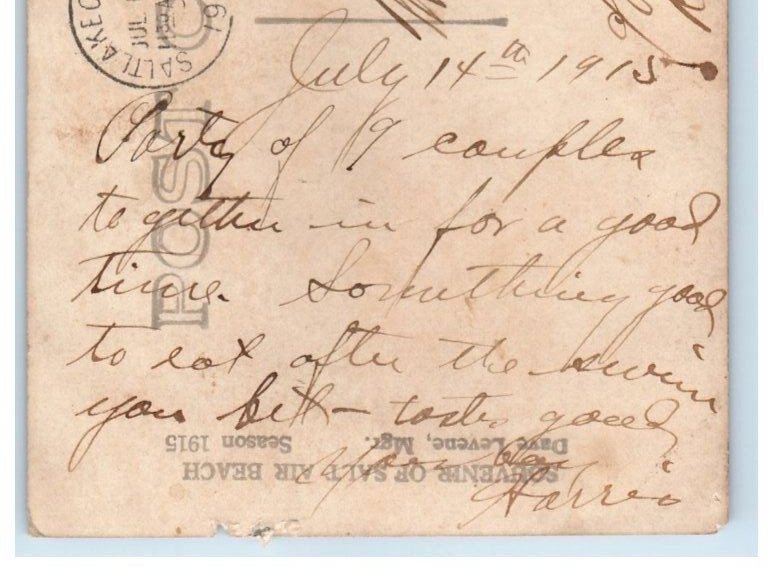 SALT LAKE C
JUL
19
July 14th 1915
Party of 9 couples
together in for a good
time. Something good
to eat after the swim
you bet - tastes good
Yours
Harris
POST C
SOUVENIR OF SALT AIR BEACH
Dave Levene, Mgr. Season 1915